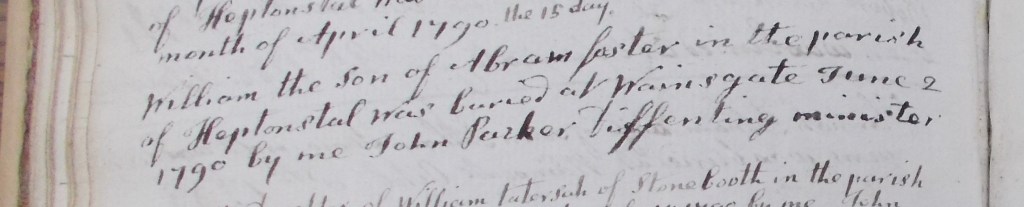 of Heptonstal
month of April 1790 the 15 day.
William the Son of Abram foster in the parish
of Heptonstal was buried at Wainsgate June 2
1790 by me John Parker. Diffenting minister
of William tatersah of Stonebooth in the parish
by me John